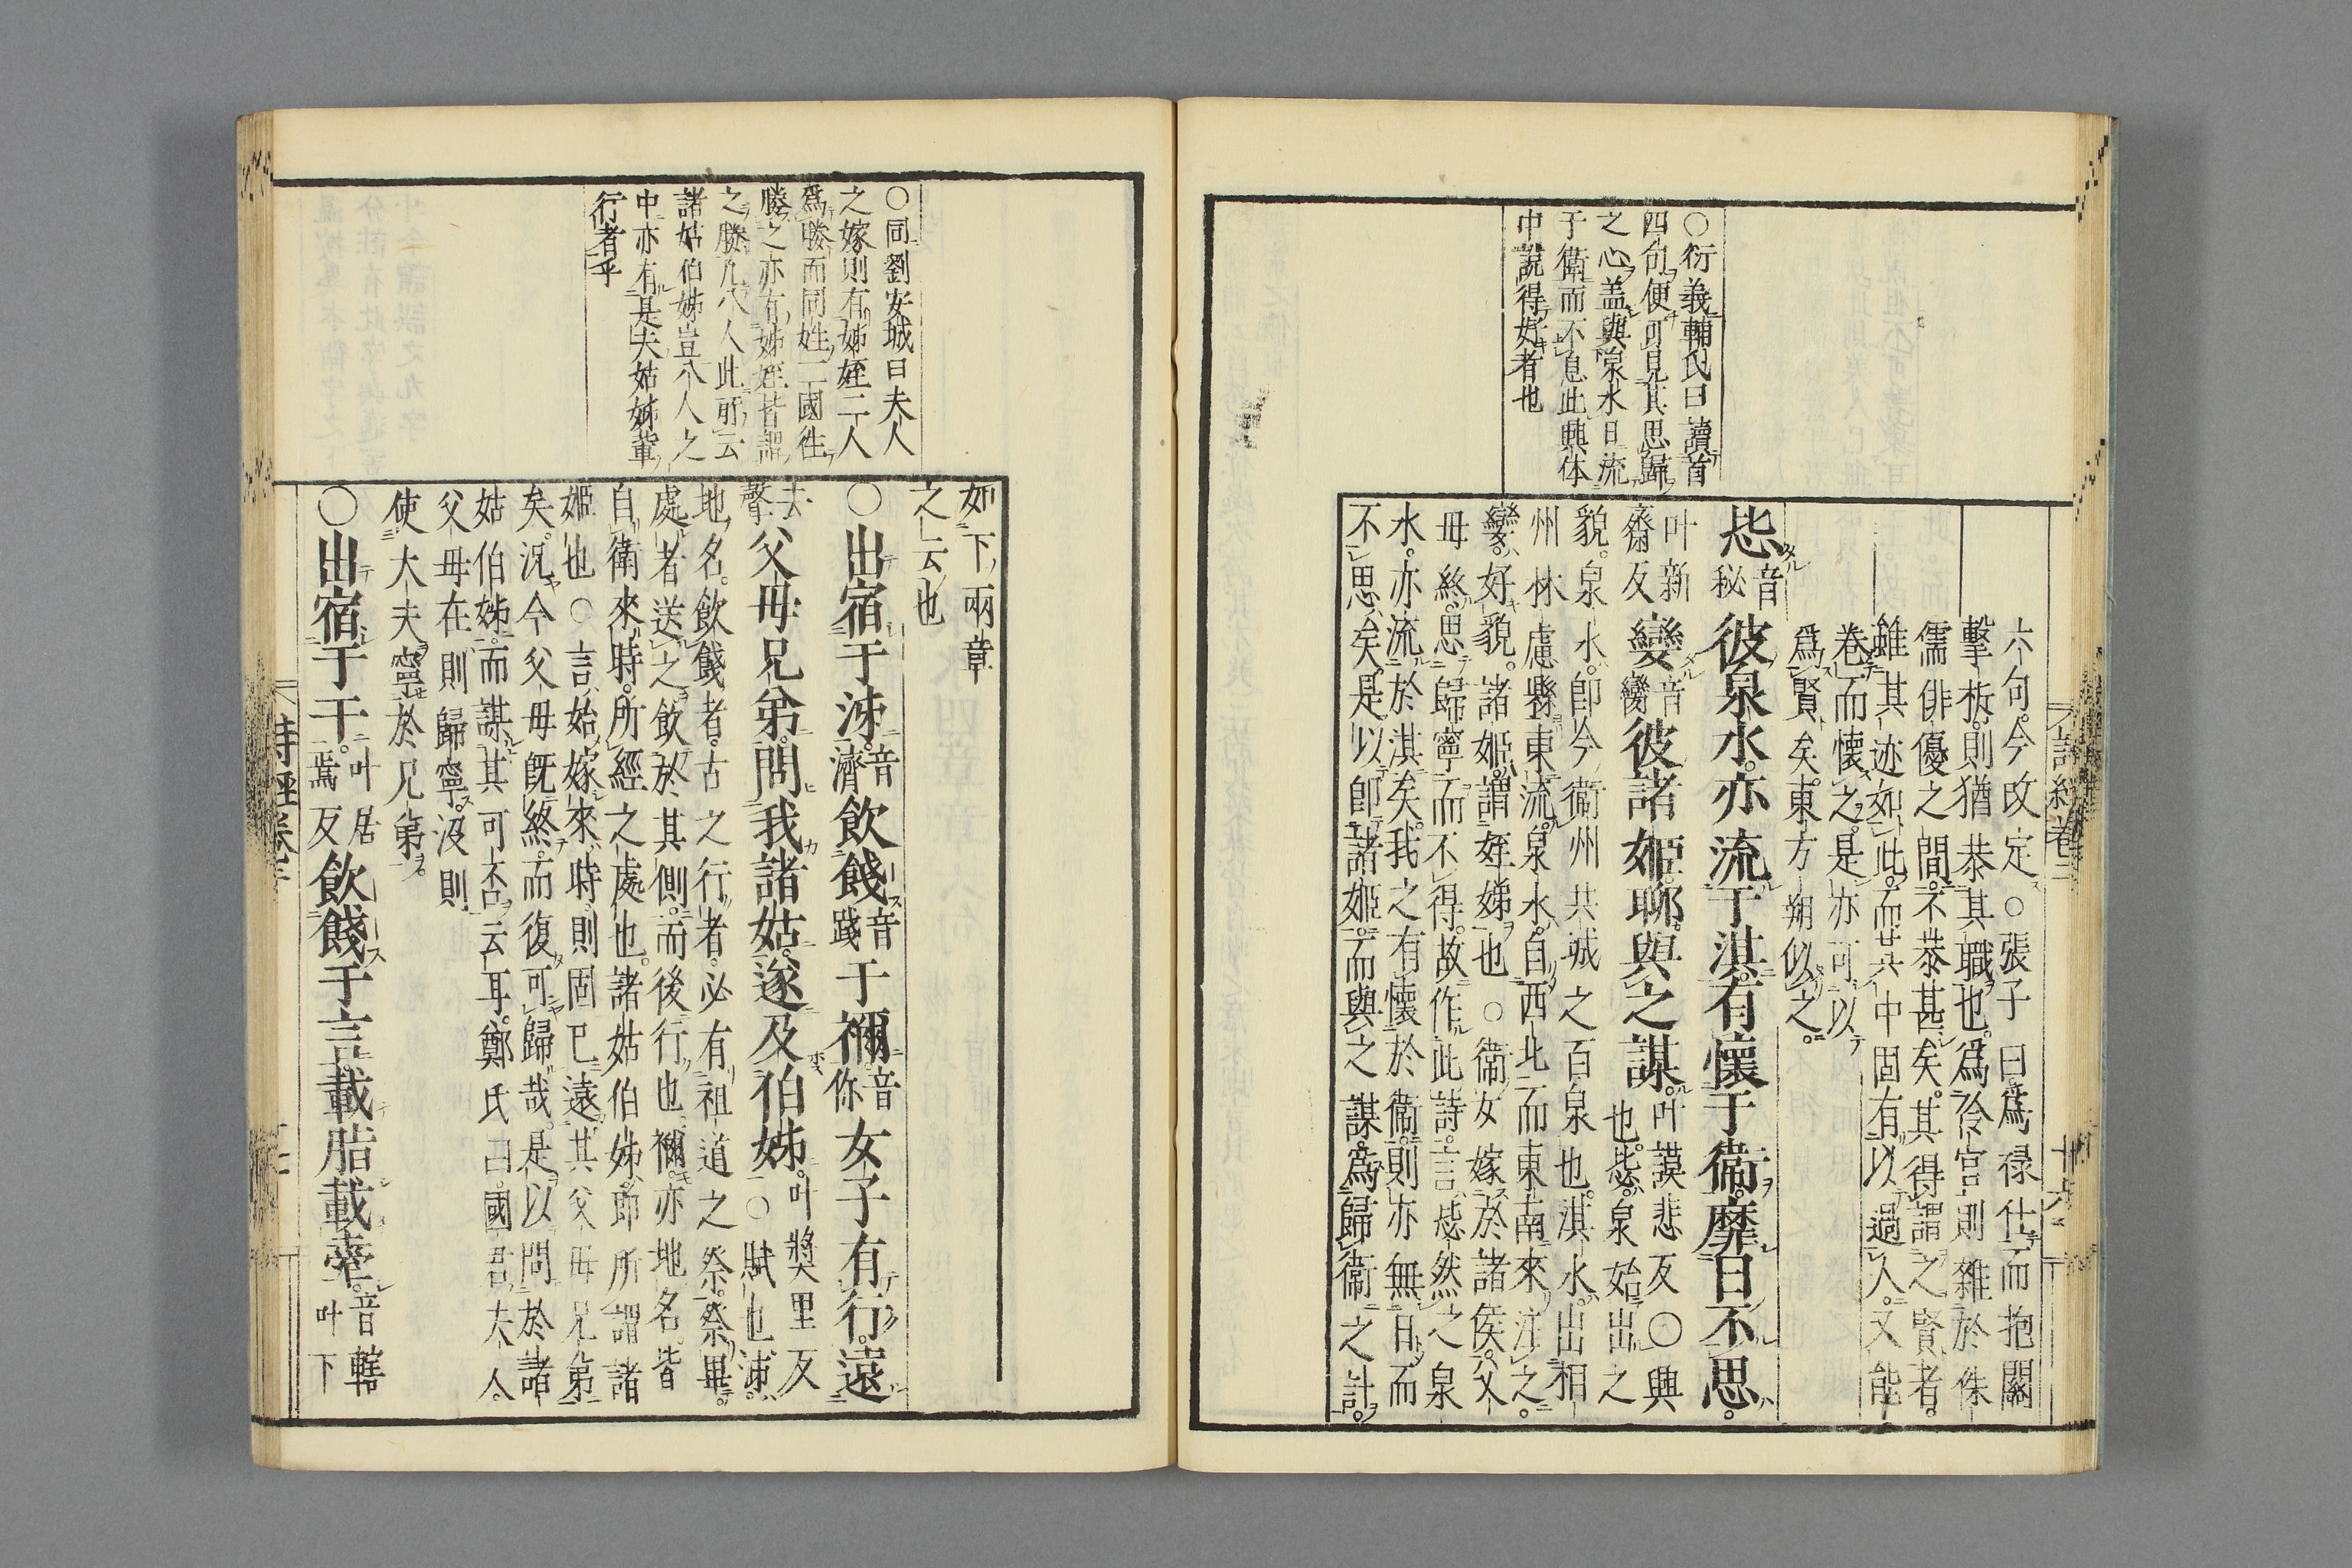 六句今改定○張子曰爲禄仕而抱關
擊柝則猶恭其職也爲伶官則雜於侏
儒俳優之間不恭甚矣其得謂之賢者
雖其迹如此而其中固有以過人又能
卷而懷之是亦可以
爲賢矣東方朔似之
毖音秘彼泉水亦流于淇有懷于衞靡日不思
叶新齎反孌音臠彼諸姬聊與之謀叶謨悲反○興
也毖泉始出之
貌泉水即今衞州共城之百泉也淇水出相
州林慮縣東流泉水自西北而東南來注之
孌好貌諸姬謂姪娣也○衞女嫁於諸侯父
母終思歸寧而不得故作此詩言毖然之泉
水亦流於淇矣我之有懷於衞則亦無日而
不思矣是以即諸姬而與之謀爲歸衞之計
○衍義輔氏曰讀首
四句便可見其思歸
之心盖與泉水日流
于衞而不息此興体
中說得好者也
詩經卷二
十六
如下兩章
之云也
○出宿于泲音濟飲餞音踐于禰音你女子有行遠
去聲父母兄弟問我諸姑遂及伯姊叶奬里反○賦也泲
地名飲餞者古之行者必有祖道之祭祭畢
處者送之飲於其側而後行也禰亦地名皆
自衞來時所經之處也諸姑伯姊即所謂諸
姬也○言始嫁來時則固已遠其父母兄弟
矣况今父母旣終而復可歸哉是以問於諸
姑伯姊而謀其可否云耳鄭氏曰國君夫人
父母在則歸寧沒則
使大夫寧於兄弟
○出宿于干叶居焉反飲餞于言載脂載舝音轄叶下
○同劉安城曰夫人
之嫁則有姊姪二人
爲媵而同姓二國徃
媵之亦有姊姪皆謂
之媵凡八人此所云
諸姑伯姊豈八人之
中亦有是夫姑姊輩
行者乎
詩經卷二